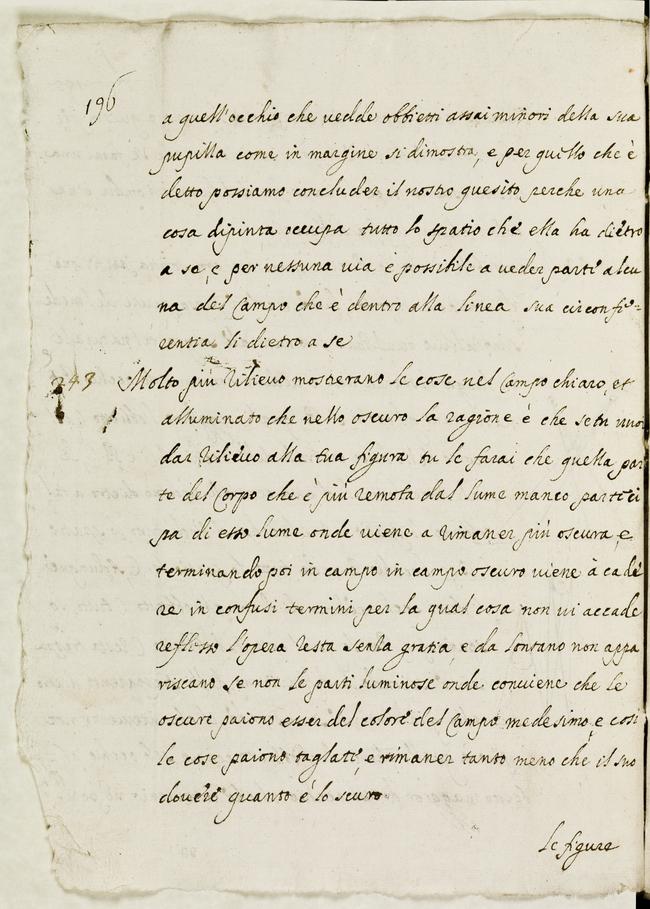 196
a quell'occhio che vedde obbietti assai minori della sua
pupilla come in margine si dimostra, e per quello che è
detto possiamo concluder il nostro quesito perche una
cosa dipinta occupa tutto lo spatio che ella ha dietro
a se, e per nessuna via è possibile a veder parte alcu
na del Campo che è dentro alla linea sua circonfe=
rentia li dietro a se
243 Molto più rilievo mosterano le cose nel Campo chiaro, et
alluminato che nello oscuro la ragione è che se tu vuoi
dar rilievo alla tua figura tu le farai che quella par
te del Corpo che è più remota dal lume manco partici
pa di esso lume onde viene a rimaner più oscura, e
terminando poi in campo in campo oscuro viene à cade
re in confusi termini per la qual cosa non vi accade
reflesso l'opera resta senza gratia, e da lontano non appa
riscano se non le parti luminose onde conviene che le
oscure paiono esser del colore del Campo medesimo, e così
le cose paiono tagliate, e rimaner tanto meno che il suo
dovere quanto è lo scuro
le figure